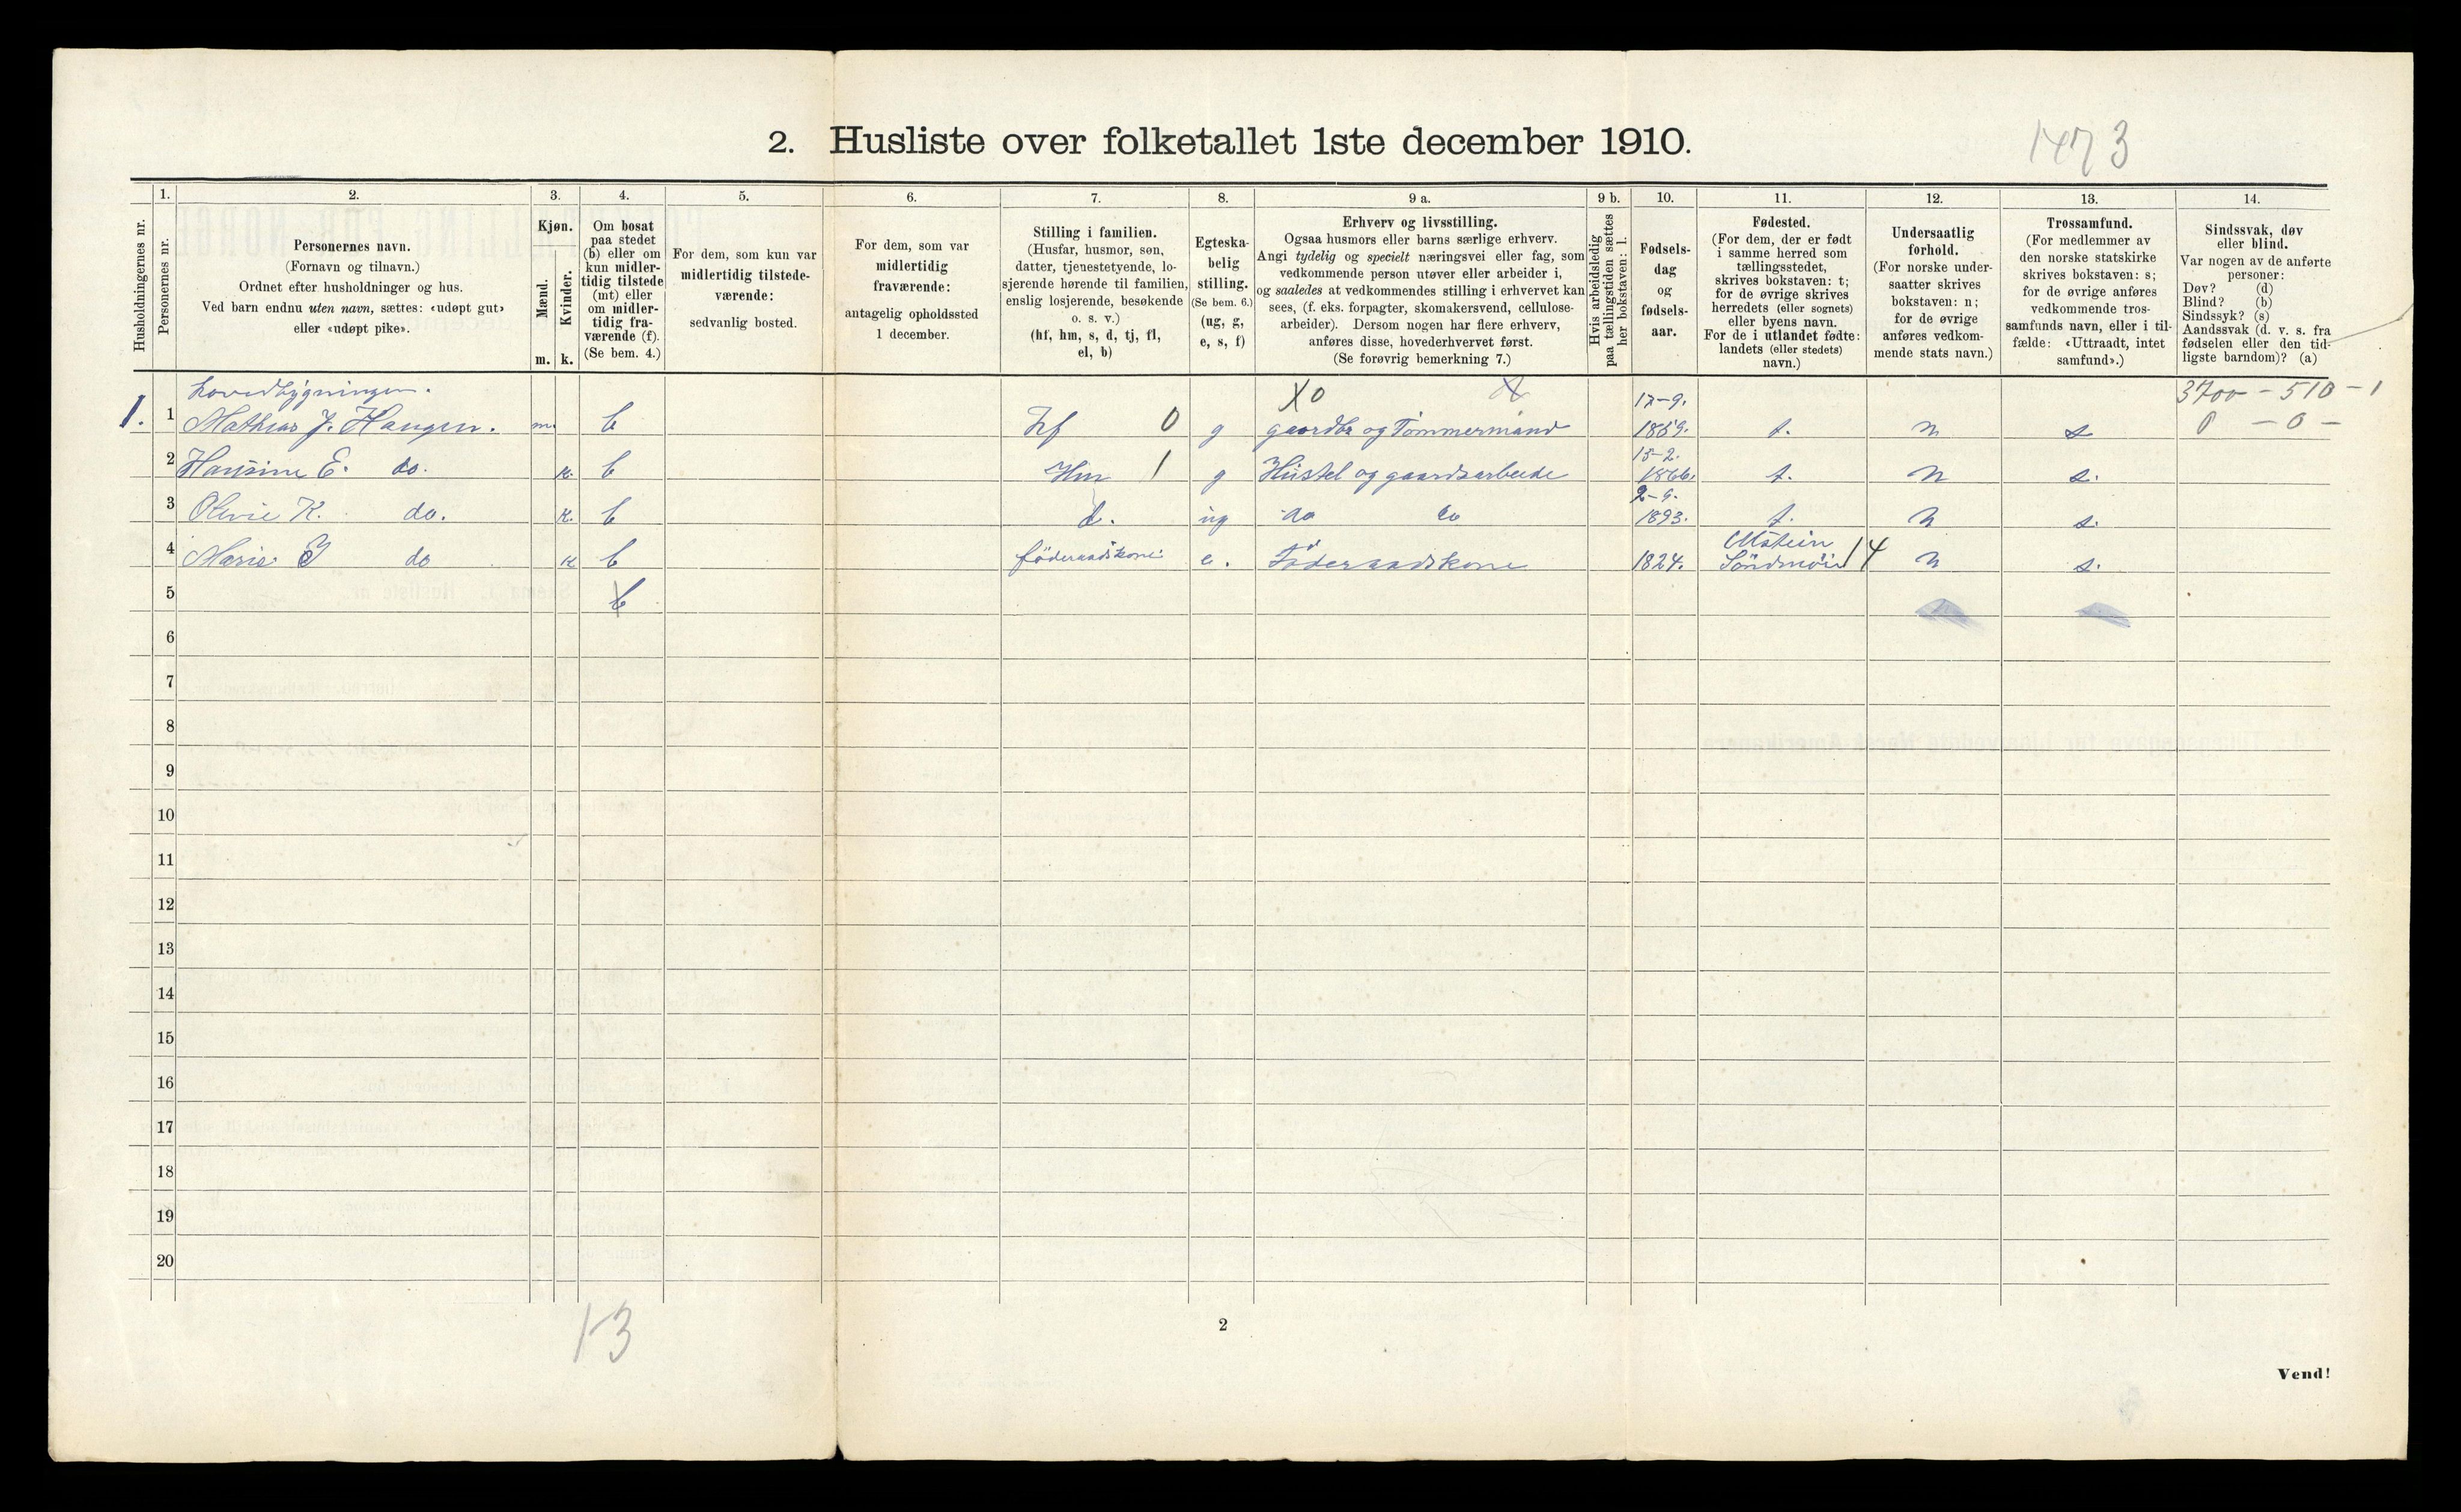 2. Husliste over folketallet 1ste december 1910.
1473
Husholdningernes nr.
1.
Personernes nr.
2.
Personernes navn.
(Fornavn og tilnavn.)
Ordnet efter husholdninger og hus.
Ved barn endnu uten navn, sættes: «udøpt gut»
eller «udøpt pike».
3.
Kjøn.
Mænd.
Kvinder.
m. k.
4.
Om bosat
paa stedet
(b) eller om
kun midler-
tidig tilstede
(mt) eller
om midler-
tidig fra-
værende (f).
(Se bem. 4.)
5.
For dem, som kun var
midlertidig tilstede-
værende:
sedvanlig bosted.
6.
For dem, som var
midlertidig
fraværende:
antagelig opholdssted
1 december.
7.
Stilling i familien.
(Husfar, husmor, søn,
datter, tjenestetyende, lo-
sjerende hørende til familien,
enslig losjerende, besøkende
o. s. v.)
(hf, hm, s, d, tj, fl,
el, b)
8.
Egteska-
belig
stilling.
(Se bem. 6.)
(ug, g,
e, s, f)
9 a.
Erhverv og livsstilling.
Ogsaa husmors eller barns særlige erhverv.
Angi tydelig og specielt næringsvei eller fag, som
vedkommende person utøver eller arbeider i,
og saaledes at vedkommendes stilling i erhvervet kan
sees, (f. eks. forpagter, skomakersvend, cellulose-
arbeider). Dersom nogen har flere erhverv,
anføres disse, hovederhvervet først.
(Se forøvrig bemerkning 7.)
9 b.
Hvis arbeidsledig
paa tællingstiden sættes
her bokstaven: l.
10.
Fødsels-
dag
og
fødsels-
aar.
11.
Fødested.
(For dem, der er født
i samme herred som
tællingsstedet,
skrives bokstaven: t;
for de øvrige skrives
herredets (eller sognets)
eller byens navn.
For de i utlandet fødte:
landets (eller stedets)
navn.)
12.
Undersaatlig
forhold.
(For norske under-
saatter skrives
bokstaven: n;
for de øvrige
anføres vedkom-
mende stats navn.)
13.
Trossamfund.
(For medlemmer av
den norske statskirke
skrives bokstaven: s;
for de øvrige anføres
vedkommende tros-
samfunds navn, eller i til-
fælde: «Uttraadt, intet
samfund».)
14.
Sindssvak, døv
eller blind.
Var nogen av de anførte
personer:
Døv? (d)
Blind? (b)
Sindssyk? (s)
Aandssvak (d. v. s. fra
fødselen eller den tid-
ligste barndom)? (a)
Hovedbygningen. X0 X 3700 - 510 - 1
1. 1 Mathias J. Haugen. m. b Hf 0 g gaardbr og Tömmermand 1869. t. n s 0 - 0 -
2 E. do. k. b Hm 1 g Hüstel og gaardsarbeide 15-2. 1866. t. n s.
3 K. do. k. b d. ug do do 2-9. 1893. t. n s.
4 Marie do k b föderaadskone e. Föderaadskone 1824. Ulstein Söndmör 14 n s.
5 b
6
7
8
9
10
11
12
13
14
15
16
17
18
19
20
1-3
2
Vend!